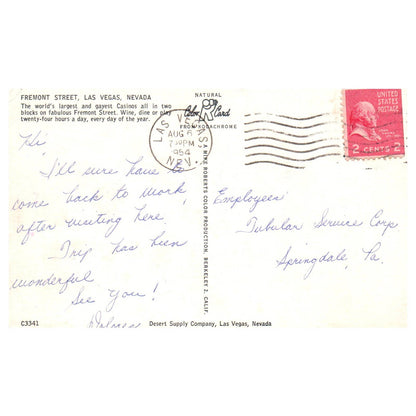 FREMONT STREET, LAS VEGAS, NEVADA
The world's largest and gayest Casinos all in two
blocks on fabulous Fremont Street. Wine, dine or play
twenty-four hours a day, every day of the year.
NATURAL
Color Card
FROM KODACHROME
LAS VEGAS
AUG 6
7 30 PM
1954
NEV.
UNITED
STATES
POSTAGE
2 CENTS 2
Hi
I'll sure have to
come back to work
after visiting here.
Trip has been
wonderful
See you!
Dolores
A MIKE ROBERTS COLOR PRODUCTION, BERKELEY 2, CALIF.
Employees
Tubular Service Corp
Springdale, Pa.
C3341
Desert Supply Company, Las Vegas, Nevada